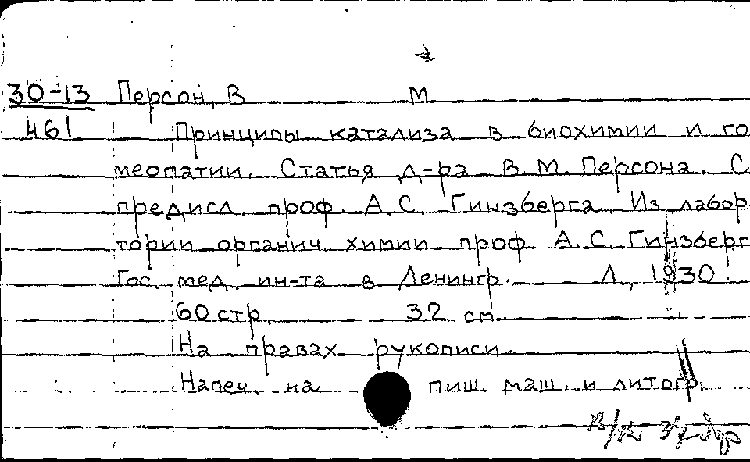 30-13 Персон, В М.
461 Принципы катализа в биохимии и го
меопатии. Статья д-ра В.М. Персона. С
предисл. проф. А.С. Гинзберга. Из лабор
тории органич. химии проф. А.С. Гинзберг
Гос. мед. ин-та в Ленингр. Л., 1930.
60 стр. 32 см.
На правах рукописи.
Напеч. на пиш. маш. и литогр.